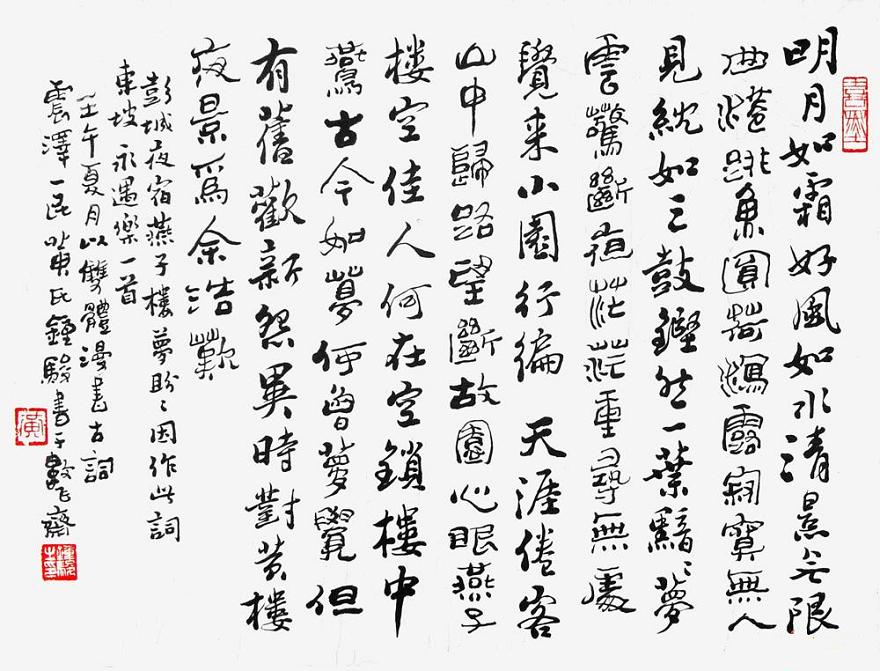 明月如霜好風如水清景无限
曲港跳魚圓荷瀉露寂寞無人
見紞如三鼓鏗然一葉黯〻夢
雲驚斷夜茫茫重尋無處
覺来小園行徧天涯倦客
山中歸路望斷故園心眼燕子
樓空佳人何在空鎖樓中
燕古今如夢何曾夢覺但
有舊歡新怨異時對黄樓
夜景爲余浩歎
彭城夜宿燕子樓夢盼〻因作此詞
東坡永遇樂一首
壬午夏月以雙體漫書古詞
震澤一民黄氏鍾駿書于齋
黄